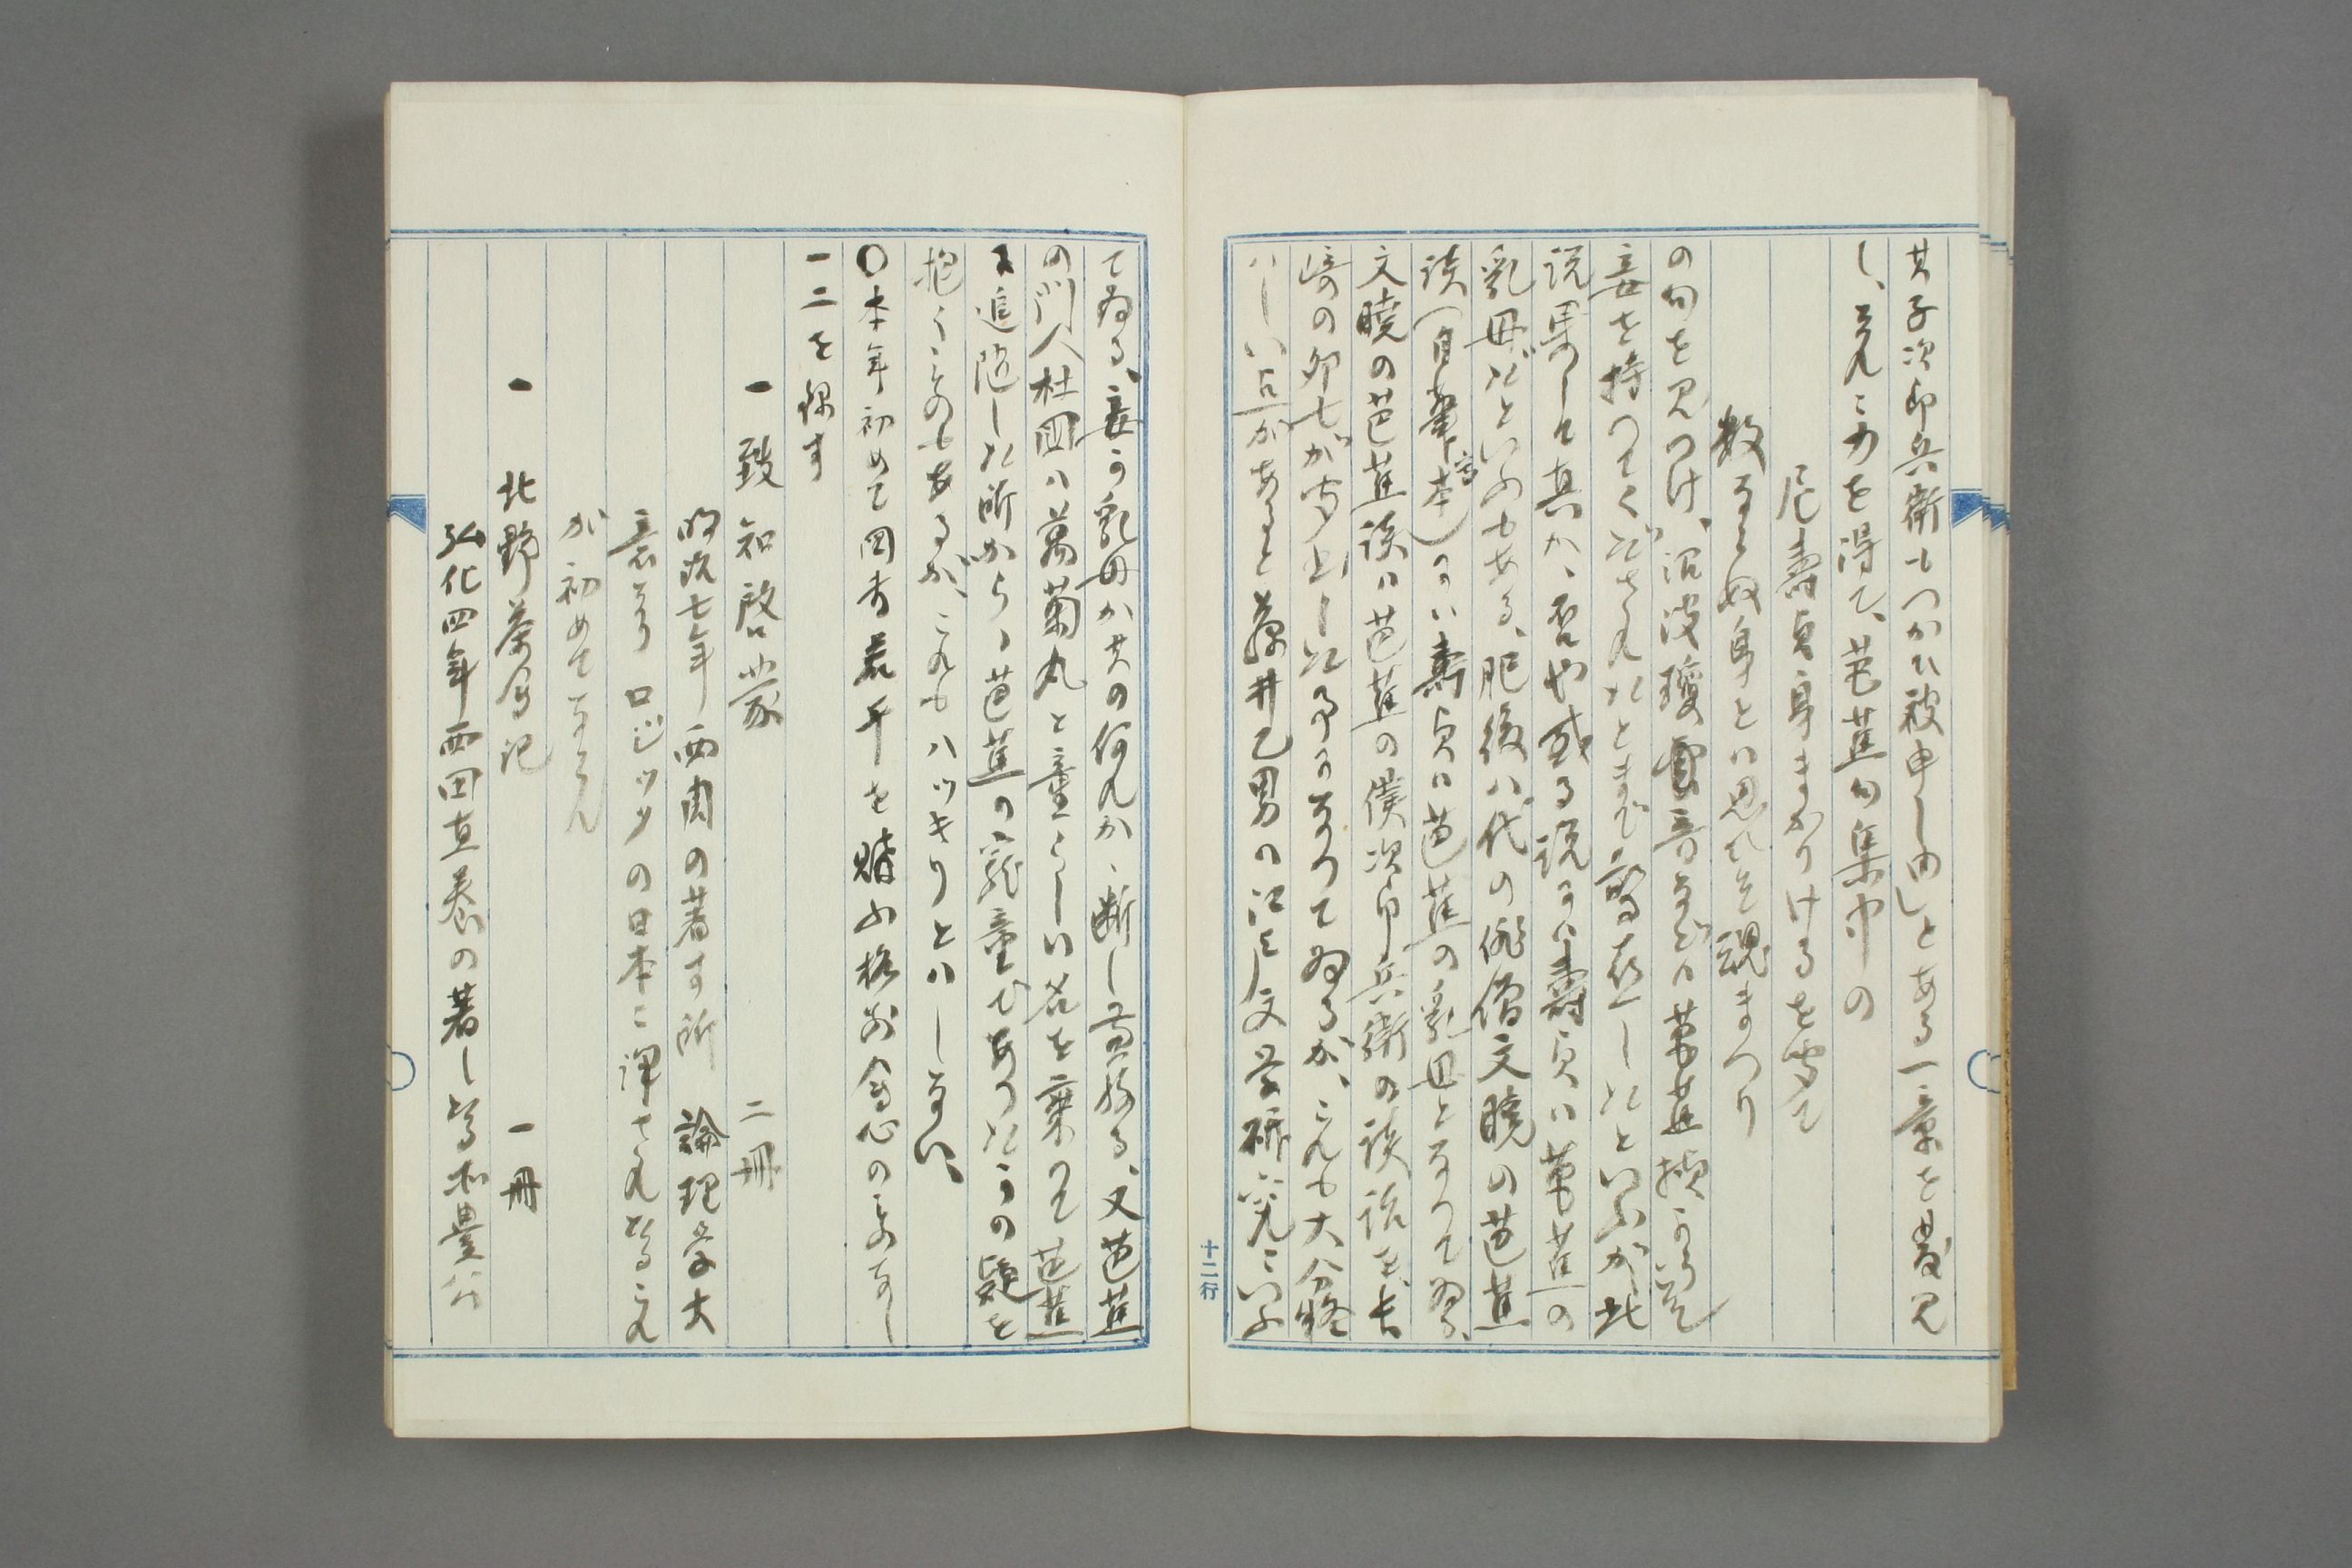 其子次郎兵衛もつかひ被申し由」とある一章を発見
し、これに力を得て、芭蕉句集中の
尼寿貞身まかりけるを聞て
数ならぬ身とな思ひそ魂まつり
の句を見つけ、沼波瓊音などハ芭蕉
妾を持つてくださつたとまで驚喜したといふが、此
説果して真か、否や或る説にハ寿貞ハ芭蕉の
乳母だといふのもある、肥後八代の俳僧文暁の芭蕉
談(自筆写本)にハ寿貞ハ芭蕉の乳母となつて居る、
文暁の芭蕉談ハ芭蕉の僕次郎兵衛の談話を、長
崎の卯七が聞出したものになつてゐるが、これも大分怪
ハしい点があると藤井乙男の江戸文学研究にいふ
てゐる、妾か乳母か其の何れか、断し兼ねる、又芭蕉
の門人杜国ハ万菊丸と童らしい名を乗つて芭蕉
に追随した所から、芭蕉の寵童であつたらうの疑を
抱くものもあるが、これもハッキリとハしない、
〇本年初めて図書若干を購ふ格別会心のものなし
一二を録す
一 致知啓蒙 二冊
明治七年西周の著す所 論理学大
意なり ロジックの日本に訳されたるこれ
が初めてならん
一 北野藁会記 一冊
弘化四年西田直養の著したる本豊公
十二行